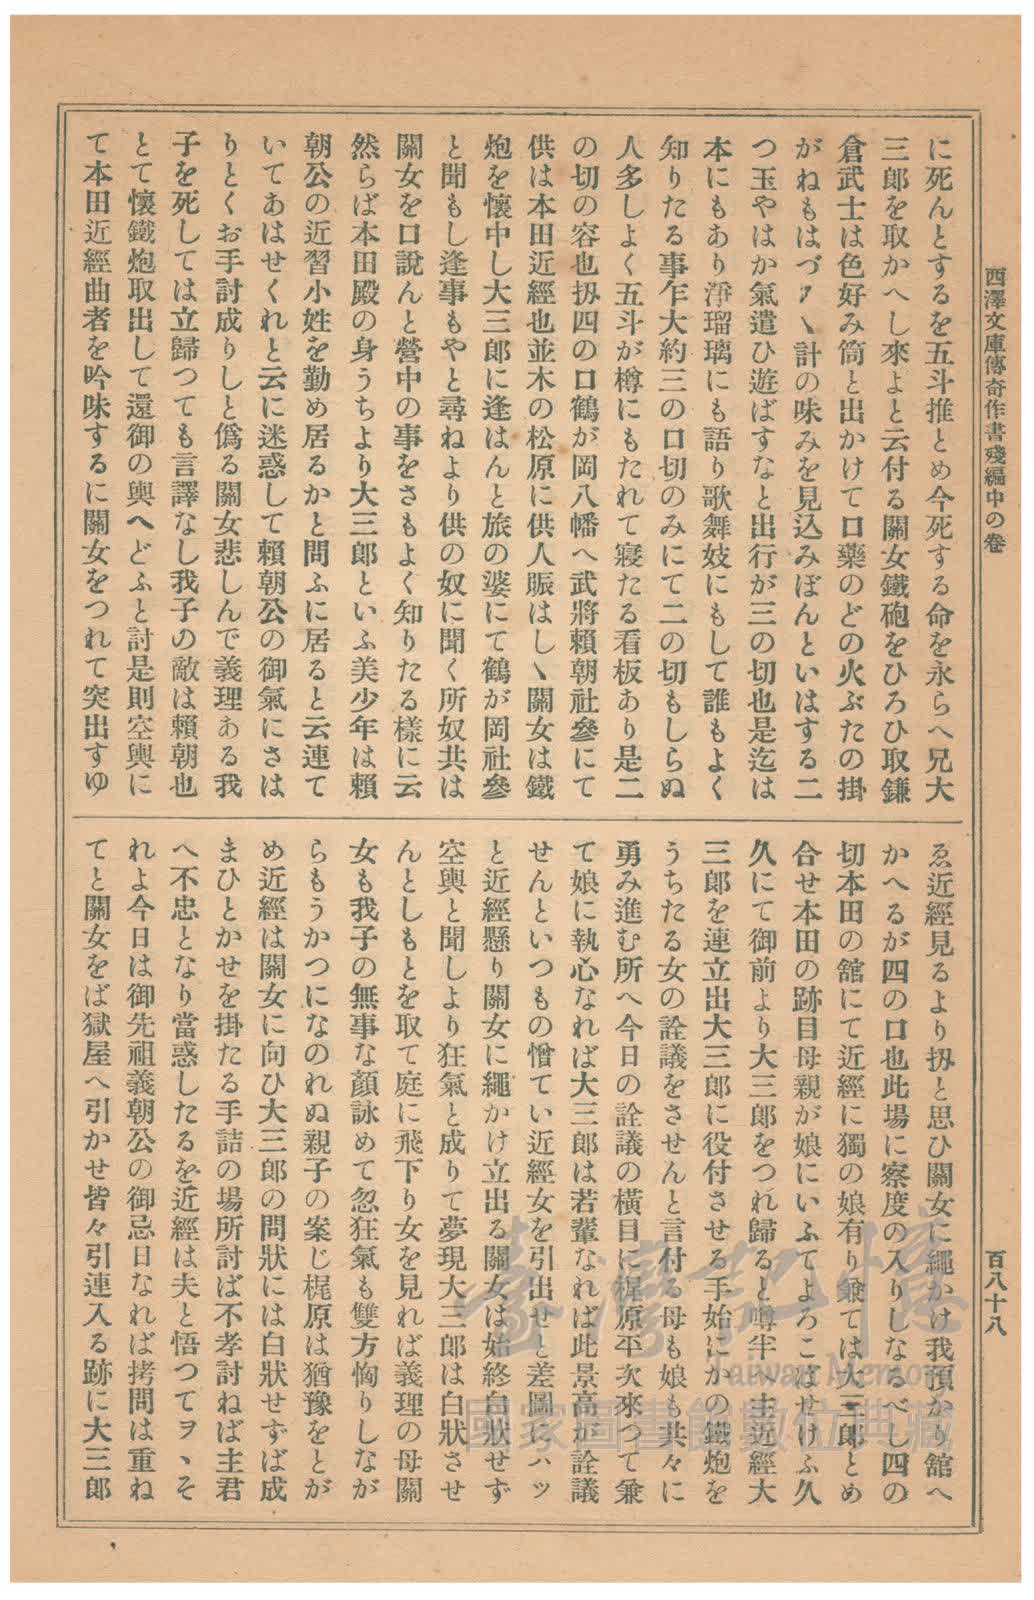 西澤文庫傳奇作書殘編中の卷
百八十八
に死んとするを五斗推とめ今死する命を永らへ兄大
三郎を取かへし來よと云付る關女鐵砲をひろひ取鎌
倉武士は色好み筒と出かけて口藥のどの火ぶたの掛
がねもはづァ〵計の味みを見込みぽんといはする二
つ玉やはか氣遣ひ遊ばすなと出行が三の切也是迄は
本にもあり淨瑠璃にも語り歌舞妓にもして誰もよく
知りたる事乍大約三の口切のみにて二の切もしらぬ
人多しよく五斗が樽にもたれて寢たる看板あり是二
の切の容也扨四の口鶴が岡八幡へ武將賴朝社參にて
供は本田近經也並木の松原に供人賑はし〵關女は鐵
炮を懷中し大三郎に逢はんと旅の婆にて鶴が岡社參
と聞もし逢事もやと尋ねより供の奴に聞く所奴共は
關女を口說んと營中の事をさもよく知りたる樣に云
然らば本田殿の身うちより大三郎といふ美少年は賴
朝公の近習小姓を勤め居るかと問ふに居ると云連て
いてあはせくれと云に迷惑して賴朝公の御氣にさは
りとくお手討成りしと僞る關女悲しんで義理ある我
子を死しては立歸つても言譯なし我子の敵は賴朝也
とて懷鐵炮取出して還御の輿へどふと討是則空輿に
て本田近經曲者を吟味するに關女をつれて突出すゆ
ゑ近經見るより扨と思ひ關女に繩かけ我預かり舘へ
かへるが四の口也此場に察度の入りしなるべし四の
切本田の舘にて近經に獨の娘有り兼ては大三郎とめ
合せ本田の跡目母親が娘にいふてよろこばせけふ久
久にて御前より大三郎をつれ歸ると噂半へ主近經大
三郎を連立出大三郎に役付させる手始にかの鐵炮を
うちたる女の詮議をさせんと言付る母も娘も共々に
勇み進む所へ今日の詮議の橫目に梶原平次來つて兼
て娘に執心なれば大三郎は若輩なれば此景高が詮議
せんといつもの憎てい近經女を引出せと差圖にハッ
と近經懸り關女に繩かけ立出る關女は始終白狀せず
空輿と聞しより狂氣と成りて夢現大三郎は白狀させ
んとしもとを取て庭に飛下り女を見れば義理の母關
女も我子の無事な顏詠めて忽狂氣も雙方恟りしなが
らもうかつになのれぬ親子の案じ梶原は猶豫をとが
め近經は關女に向ひ大三郎の問狀には白狀せずば成
まひとかせを掛たる手詰の場所討ば不孝討ねば主君
へ不忠となり當惑したるを近經は夫と悟つてヲヽそ
れよ今日は御先祖義朝公の御忌日なれば拷問は重ね
てと關女をば獄屋へ引かせ皆々引連入る跡に大三郎
臺灣記憶
Taiwan Memory
國家圖書館數位典藏